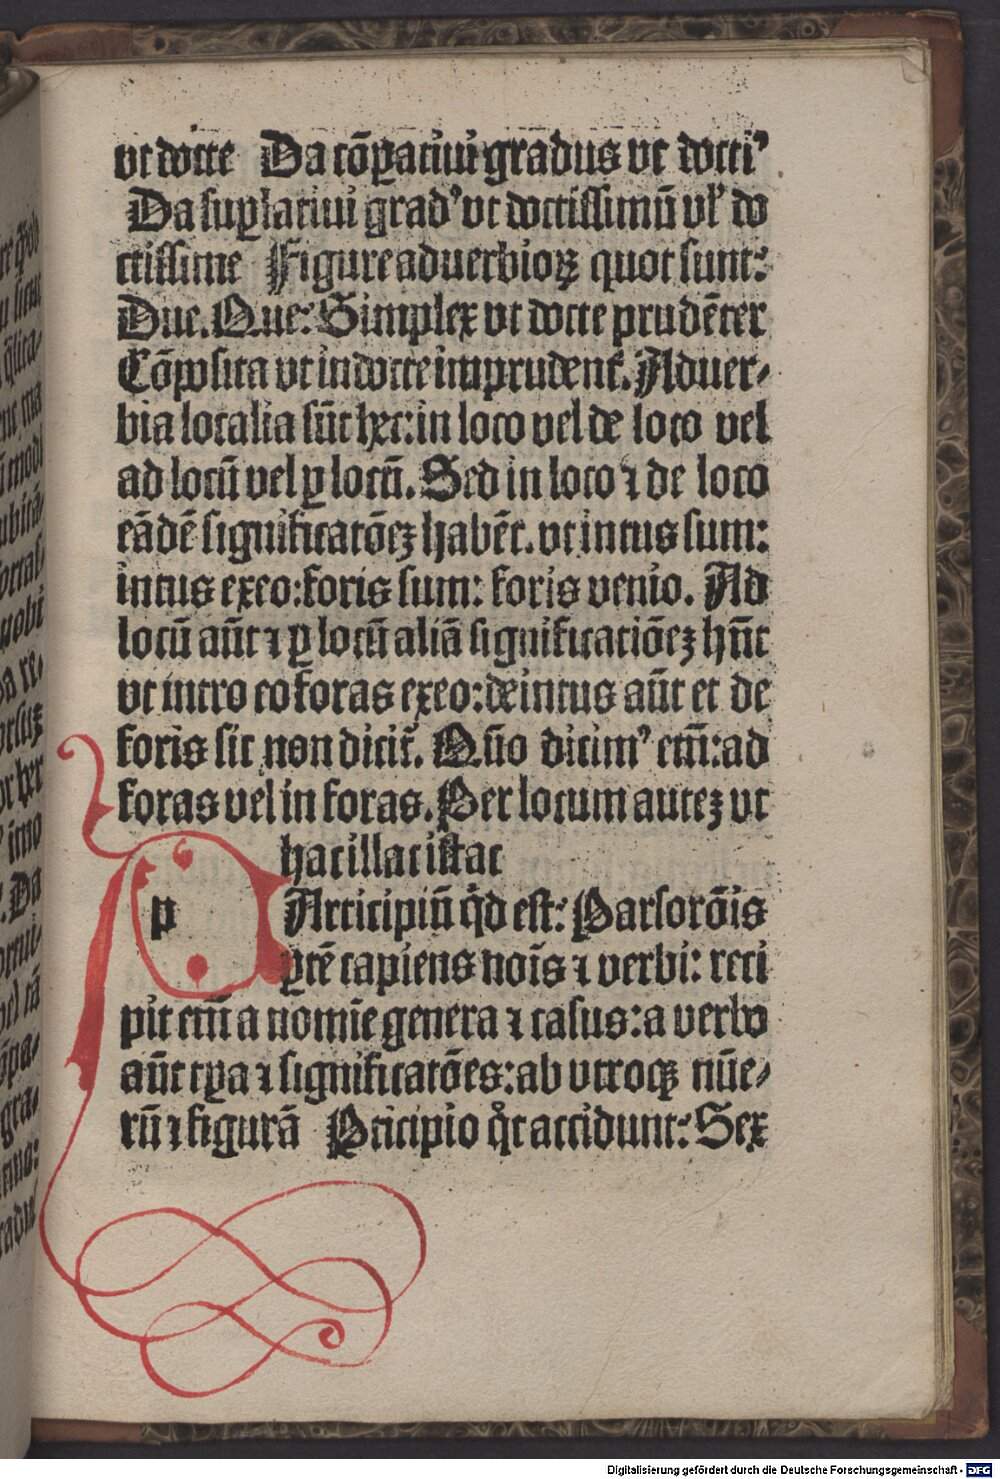 vt docte Da cōꝑatiui gradus vt docti⁹
Da suꝑlatiui grad⁹ vt doctissimū vl' do
ctissime Figure aduerbioꝝ quot sunt:
Due. Que: Simplex vt docte prudēter
Cōposita vt indocte imprudent̄. Aduer⸗
bia localia sūt hec: in loco vel de loco vel
ad locū vel ꝑ locū. Sed in loco ⁊ de loco
eādē significatōeꝫ habēt. vt intus sum:
intus exeo: foris sum: foris venio. Ad
locū aūt ⁊ ꝑ locū aliā significatiōeꝫ hn̄t
vt intro eo foras exeo: deintus aūt et de
foris sic non dicit̄. Qn̄o dicim⁹ em̄: ad
foras vel in foras. Per locum auteꝫ vt
hac illac istac
p Articipiū qd̄ est: Pars orōis
ꝑtē capiens noīs ⁊ verbi: reci
pit em̄ a nomīe genera ⁊ casus: a verbo
aūt tꝑa ⁊ significatōes: ab vtroqꝫ nūe⸗
rū ⁊ figurā Pticipio qt̄ accidunt: Sex
Digitalisierung gefördert durch die Deutsche Forschungsgemeinschaft - DFG